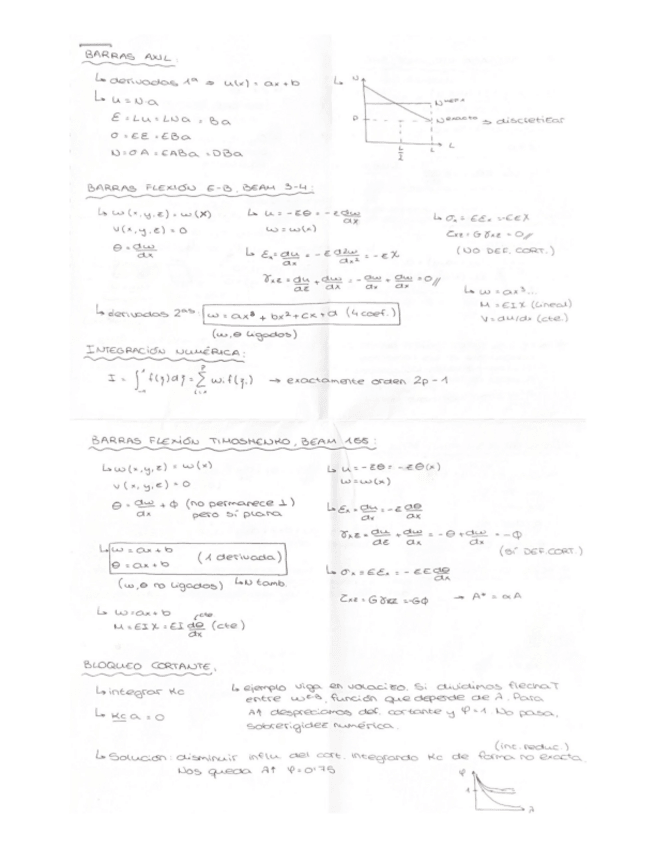 BARRAS AXIL:
↳ derivadas 1ª ⇒ u(x) = ax+b
↳ u = N·a
ε = Lu = LNa = Ba
σ = Eε = EBa
N = σA = EABa = DBa
↳ N
N^MEFX
P
N^EXACTO ⇒ discretizar
L/2 L L
BARRAS FLEXIÓN E-B, BEAM 3-4:
↳ w(x,y,z) = w(x)
v(x,y,z) = 0
θ = dw/dx
↳ u = -zθ = -z dw/dx
w = w(x)
↳ εx = du/dx = -z d²w/dx² = -zχ
γxz = du/dz + dw/dx = -dw/dx + dw/dx = 0//
↳ σx = Eεx = -zEχ
τxz = Gγxz = 0//
(NO DEF. CORT.)
↳ w = ax³...
M = EIχ (lineal)
V = dM/dx (cte.)
↳ derivadas 2ªs: w = ax³ + bx² + cx + d (4 coef.)
(w, θ ligados)
INTEGRACIÓN NUMÉRICA:
I = ∫ f(ξ)dξ = Σ wi f(ξi) → exactamente orden 2p-1
BARRAS FLEXIÓN TIMOSHENKO, BEAM 188:
↳ w(x,y,z) = w(x)
v(x,y,z) = 0
θ = dw/dx + ϕ (no permanece ⊥)
pero sí plana
↳ u = -zθ = -zθ(x)
w = w(x)
↳ εx = du/dx = -z dθ/dx
γxz = du/dz + dw/dx = -θ + dw/dx = -ϕ
(SÍ DEF. CORT.)
↳ w = ax+b
θ = ax+b (1 derivada)
(w, θ no ligados) ↳ N tamb.
↳ σx = Eεx = -zE dθ/dx
τxz = Gγxz = -Gϕ → A* = αA
↳ w = ax+b
M = EIχ = EI dθ/dx (cte)
cte
BLOQUEO CORTANTE:
↳ integrar Kc
↳ Kc a = 0
↳ ejemplo viga en voladizo. Si dividimos flecha T
entre w^E-B, función que depende de λ. Para
λ↑ despreciamos def. cortante y φ=1. No pasa,
sobrerigidez numérica.
(int. reduc.)
↳ Solución: disminuir influ. del cort. integrando Kc de forma no exacta.
Nos queda λ↑ φ=0'75
φ
1
λ